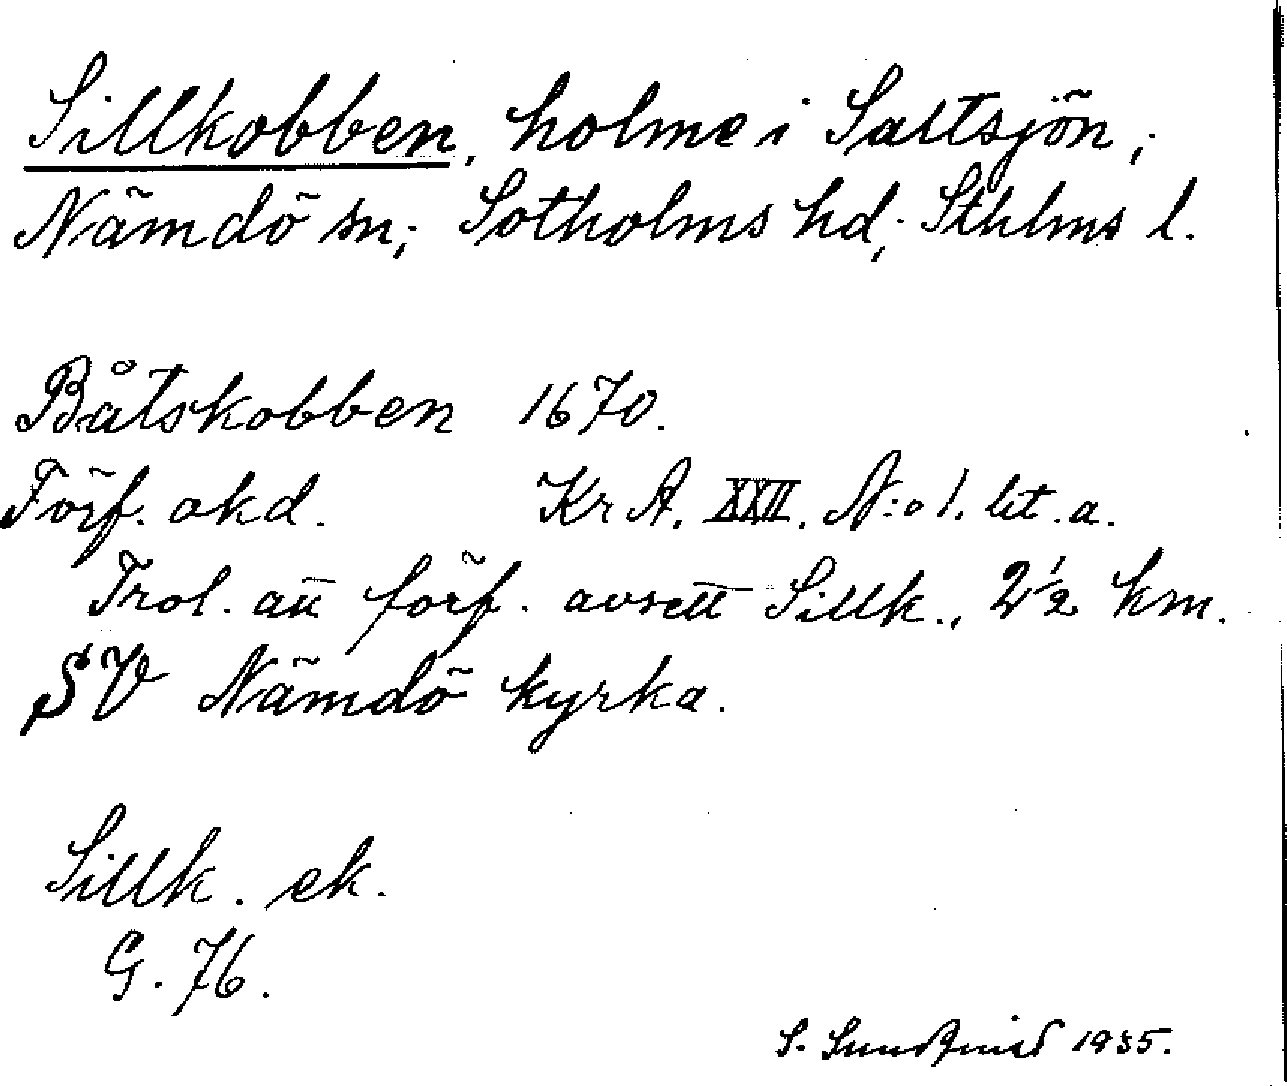 Sillkobben, holme i Saltsjön,
Nämdö sn; Sotholms hd; Sthlms l.
Båtskobben 1670.
Förf. okd. KrA. XXII. N:o 1. lit. a.
Trol. att förf. avsett Sillk., 2½ km.
SV Nämdö kyrka.
Sillk. ek.
G. 76.
S. Sundqvist 1935.